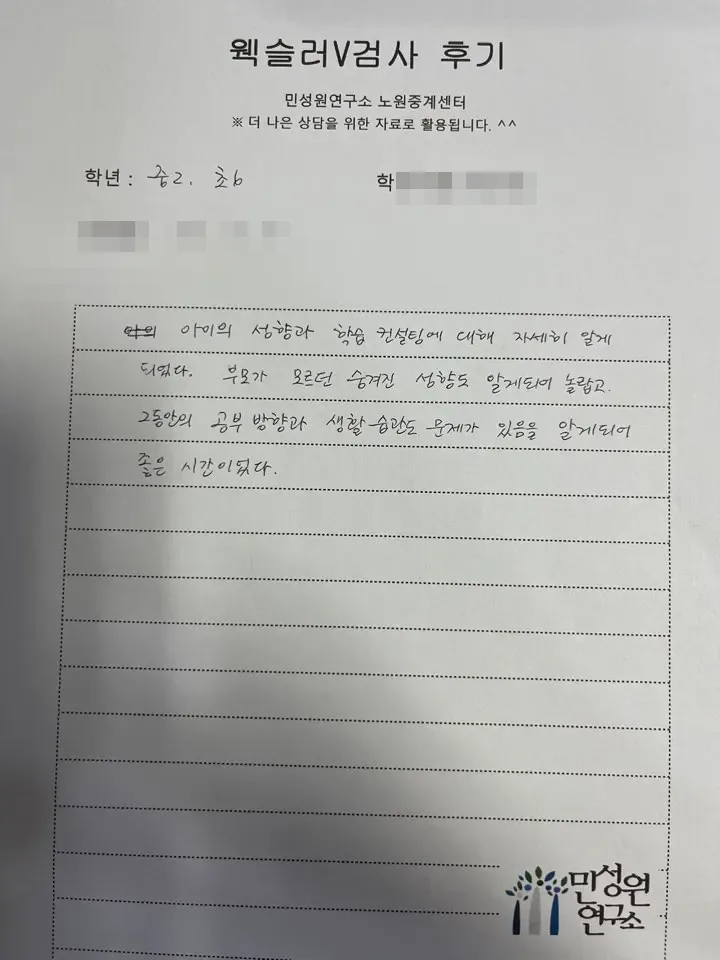 웩슬러V검사 후기
민성원연구소 노원중계센터
※ 더 나은 상담을 위한 자료로 활용됩니다. ^^
학년 : 중2. 초6 학
아이의 성향과 학습 컨설팅에 대해 자세히 알게
되었다. 부모가 모르던 숨겨진 성향도 알게되어 놀랍고.
그동안의 공부 방향과 생활 습관도 문제가 있음을 알게되어
좋은 시간이었다.
민성원
연구소